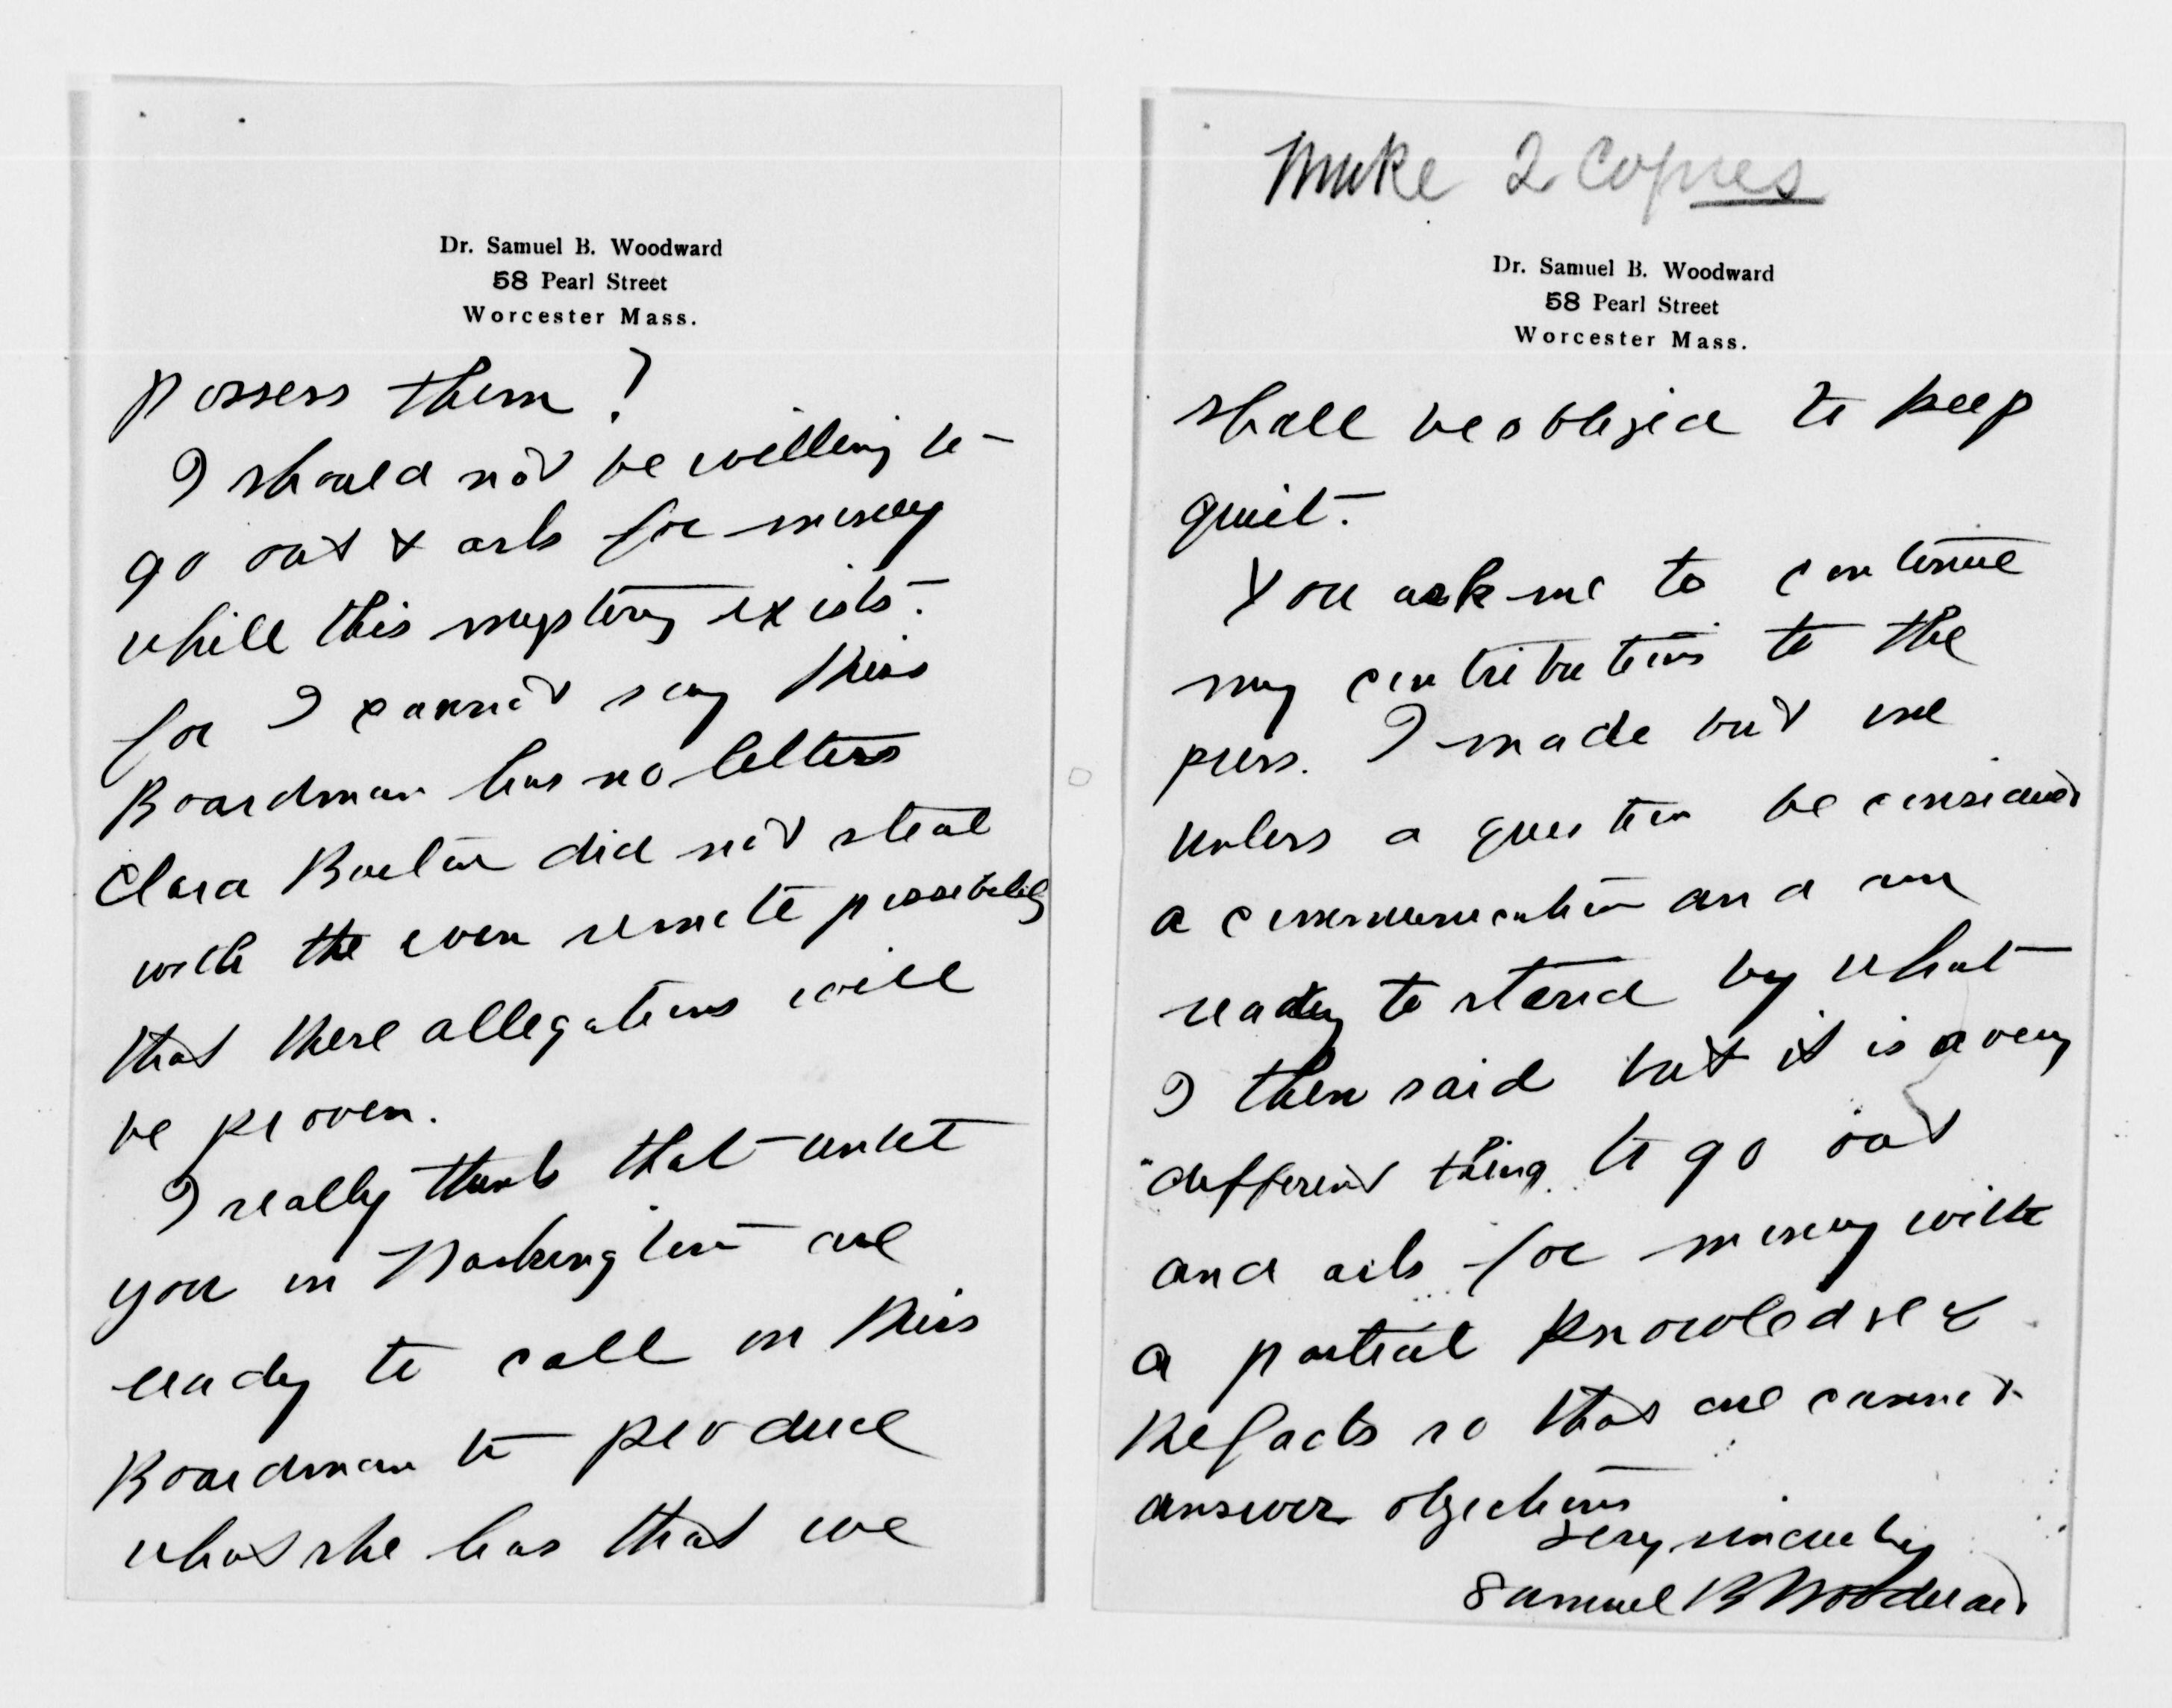 Dr. Samuel B. Woodward
58 Pearl Street
Worcester Mass.
possess them?
I should not be willing to
go out & ask for money
while this mystery exists.
for I cannot say Miss
Boardman has no letters
Clara Barton did not steal
with the even remote possibility
that these allegations will
be proven.
I really think that until
you in Washington are
ready to call on Miss
Boardman to produce
what she has that we
Make 2 Copies
Dr. Samuel B. Woodward
58 Pearl Street
Worcester Mass.
shall be obliged to keep
quiet.
You ask me to continue
my contributions to the
press. I made but one
unless a question be considered
a communication and am
ready to stand by what
I then said but it is a very
different thing to go out
and ask for money with
a partial knowledge of
the facts so that one cannot
answer objections
Very sincerely
Samuel B Woodward